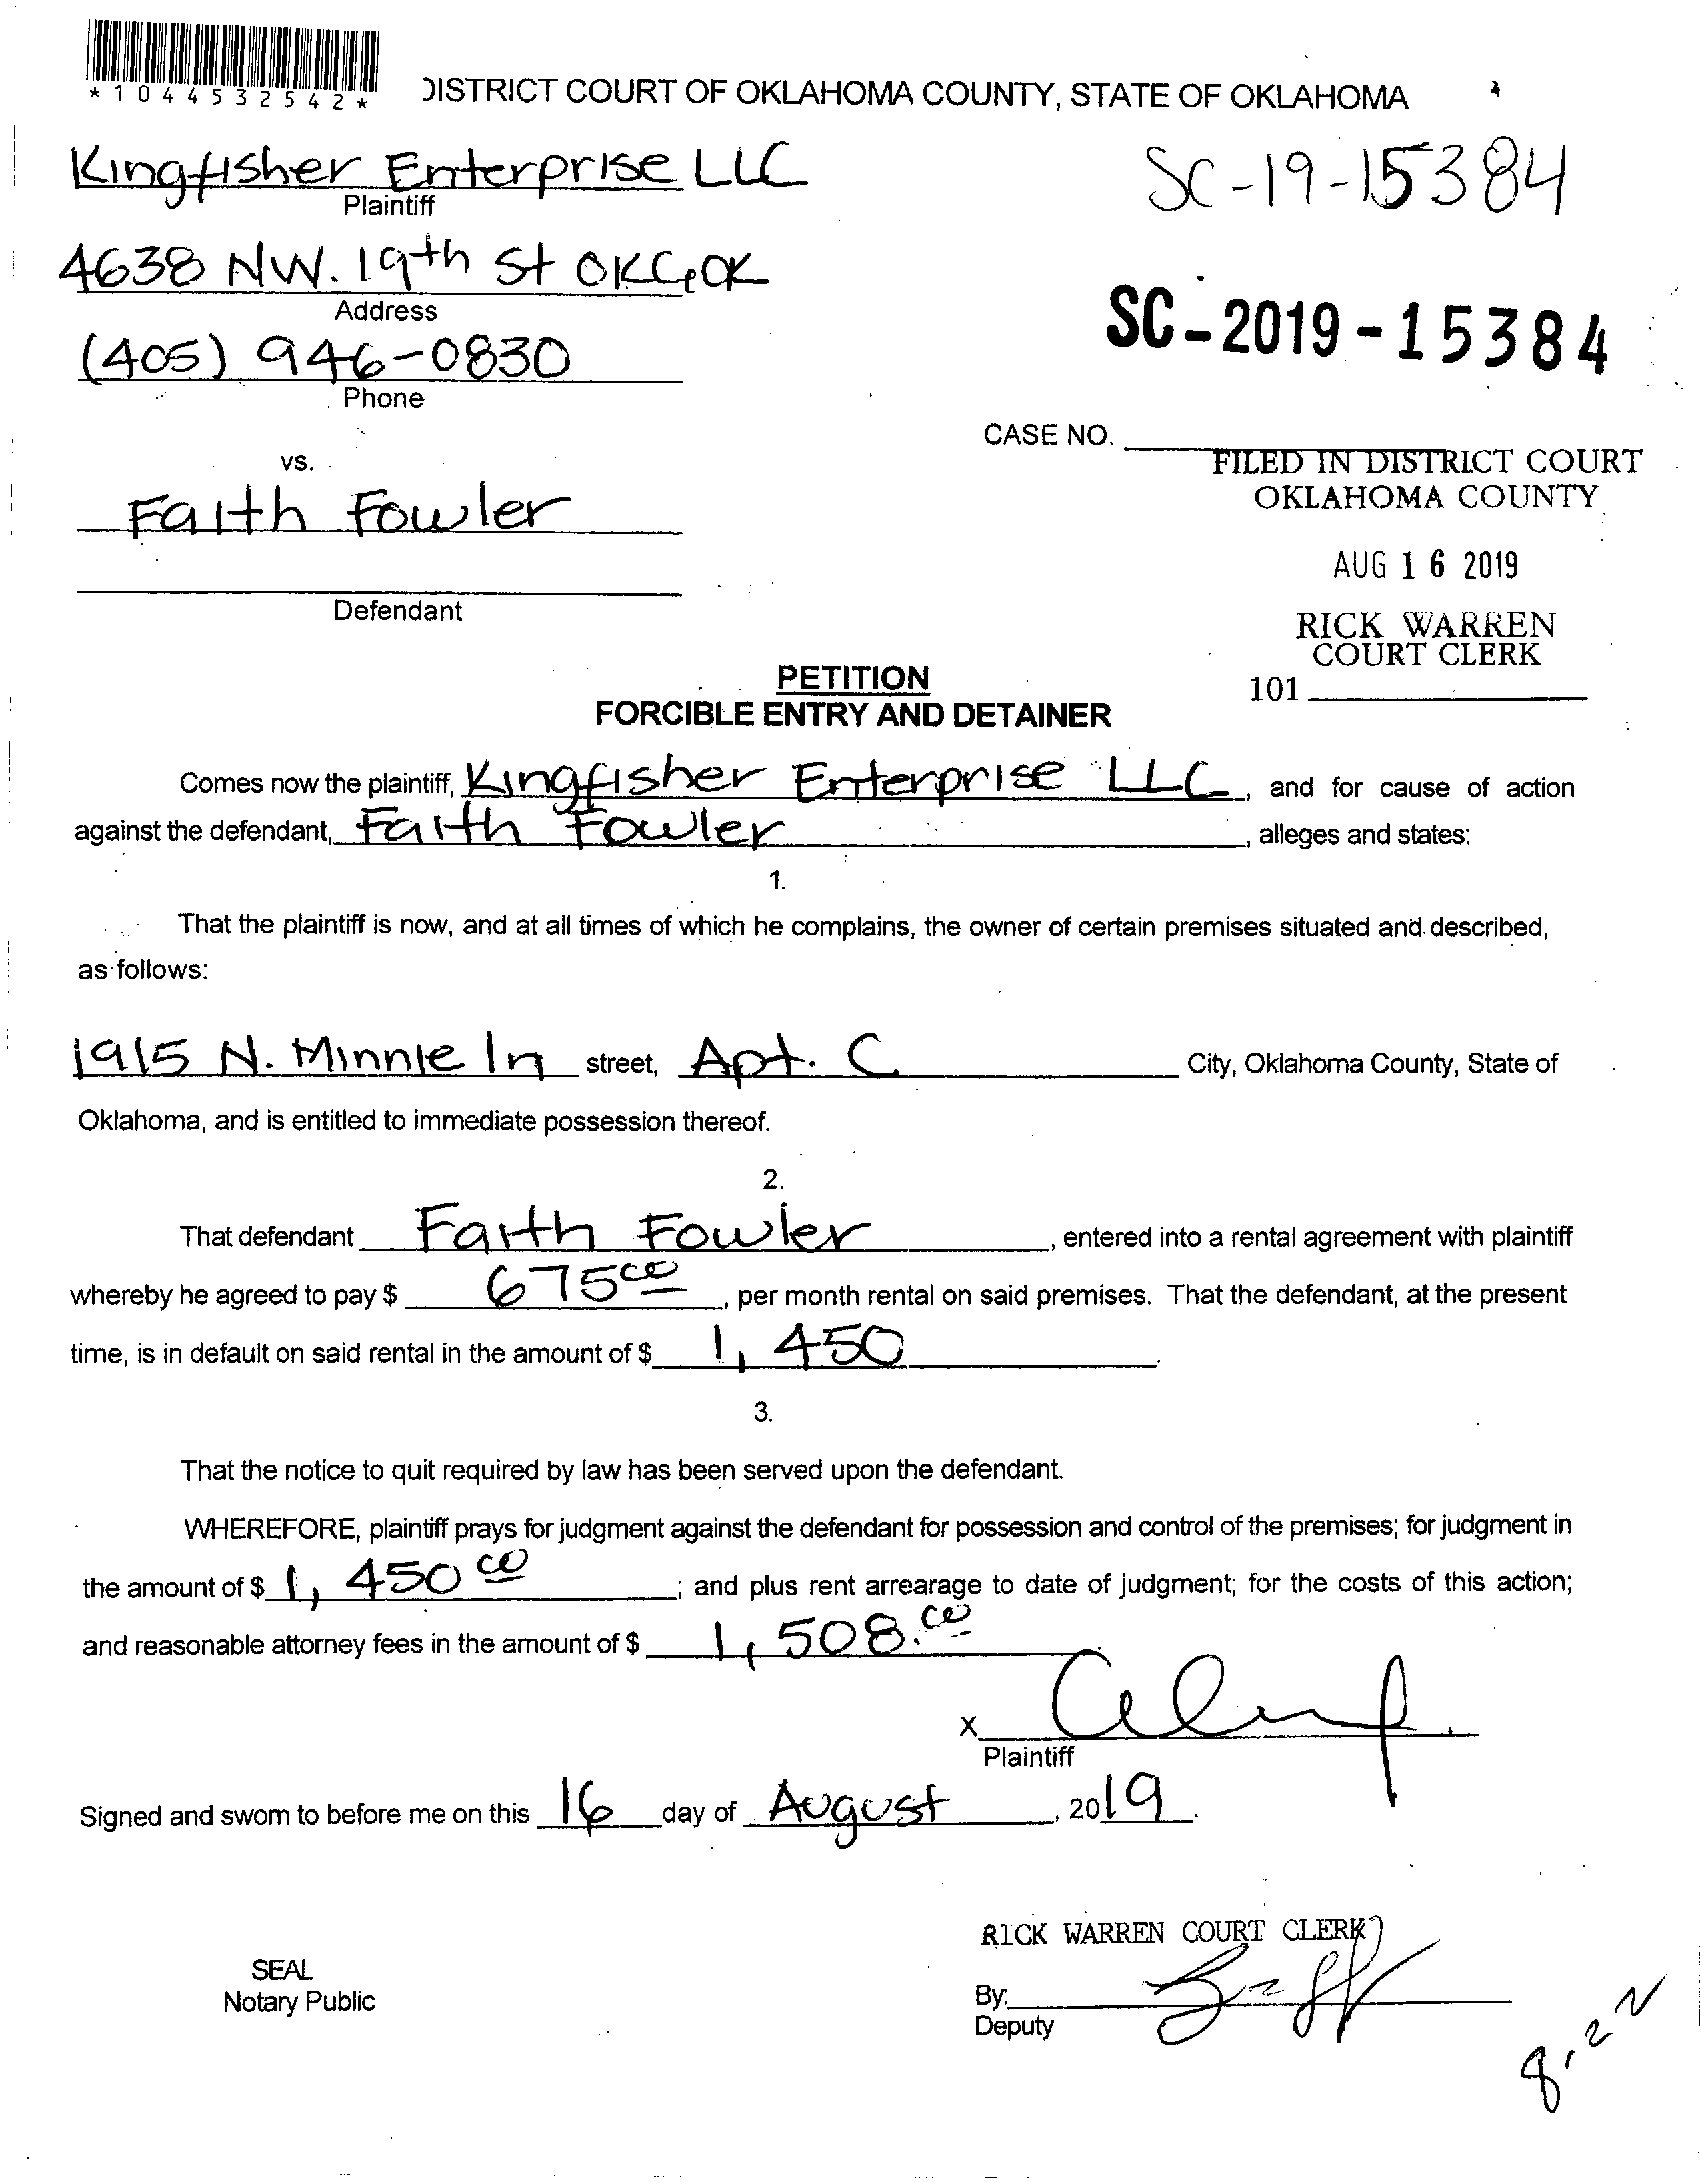 *1044532542*
DISTRICT COURT OF OKLAHOMA COUNTY, STATE OF OKLAHOMA
Kingfisher Enterprise LLC
Plaintiff
SC-19-15384
4638 NW. 19th St OKC, OK
Address
SC-2019-15384
(405) 946-0830
Phone
CASE NO.
vs.
FILED IN DISTRICT COURT
OKLAHOMA COUNTY
Faith Fowler
AUG 16 2019
Defendant
RICK WARREN
COURT CLERK
101
PETITION
FORCIBLE ENTRY AND DETAINER
Comes now the plaintiff, Kingfisher Enterprise LLC, and for cause of action
against the defendant, Faith Fowler, alleges and states:
1.
That the plaintiff is now, and at all times of which he complains, the owner of certain premises situated and described,
as follows:
1915 N. Minnie ln street, Apt. C City, Oklahoma County, State of
Oklahoma, and is entitled to immediate possession thereof.
2.
That defendant Faith Fowler, entered into a rental agreement with plaintiff
whereby he agreed to pay $ 675 00, per month rental on said premises. That the defendant, at the present
time, is in default on said rental in the amount of $ 1,450.
3.
That the notice to quit required by law has been served upon the defendant.
WHEREFORE, plaintiff prays for judgment against the defendant for possession and control of the premises; for judgment in
the amount of $ 1,450 00; and plus rent arrearage to date of judgment; for the costs of this action;
and reasonable attorney fees in the amount of $ 1,508.00
X
Plaintiff
Signed and sworn to before me on this 16 day of August, 2019.
RICK WARREN COURT CLERK
SEAL
Notary Public
By:
Deputy
8.22